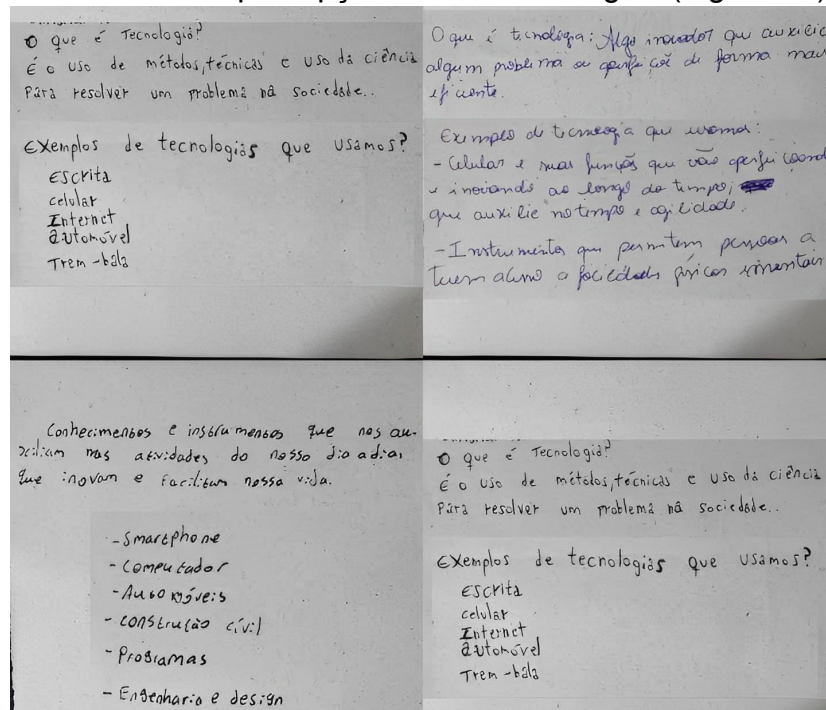 O que é Tecnologia?
É o uso de métodos, técnicas e uso da ciência
Para resolver um problema na sociedade..
Exemplos de tecnologias que usamos?
Escrita
celular
Internet
automóvel
Trem-bala
O que é tecnologia: Algo inovador que auxilie
algum problema ou aperfeiçoe de forma mais
eficiente.
Exemplo de tecnologia que usamos:
- Celular e suas funções que vão aperfeiçoando
e inovando ao longo do tempo,
que auxilie no tempo e agilidade.
- Instrumentos que permitem pessoas a
terem a facilidade físicas mentais
Conhecimentos e instrumentos que nos au-
xiliam nas atividades do nosso dia a dia,
que inovam e facilitam nossa vida.
- Smartphone
- Computador
- Automóveis
- Construção cívil
- Programas
- Engenharia e design
O que é Tecnologia?
É o uso de métodos, técnicas e uso da ciência
Para resolver um problema na sociedade..
Exemplos de tecnologias que usamos?
Escrita
celular
Internet
automóvel
Trem-bala